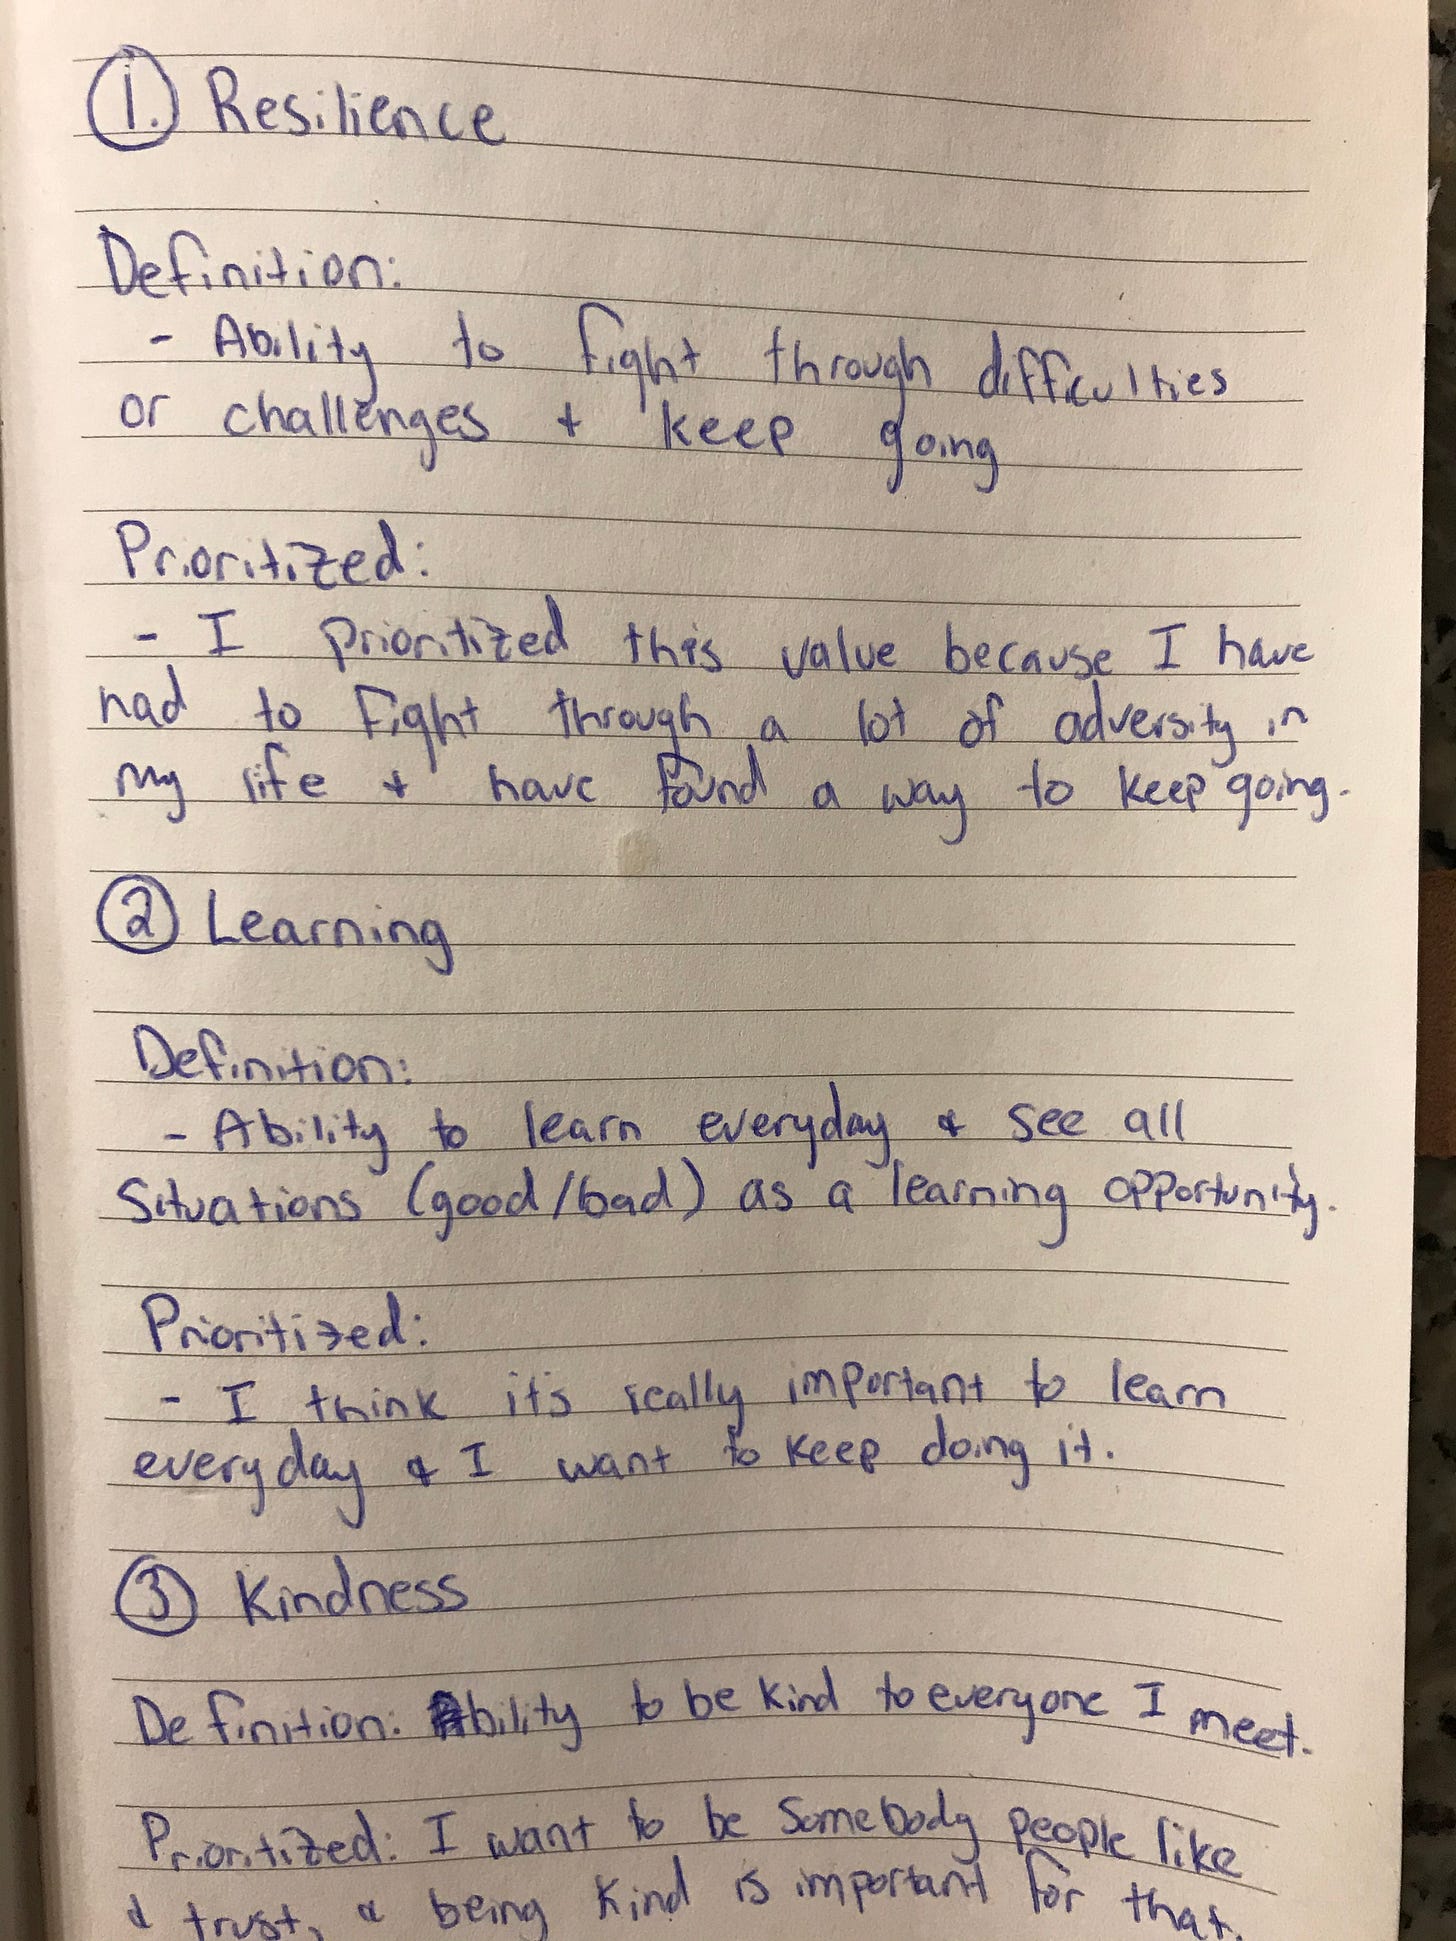 1. Resilience
Definition:
- Ability to fight through difficulties
or challenges + keep going
Prioritized:
- I prioritized this value because I have
had to fight through a lot of adversity in
my life + have found a way to keep going.
2 Learning
Definition:
- Ability to learn everyday & see all
situations (good/bad) as a learning opportunity.
Prioritized:
- I think it's really important to learn
everyday & I want to keep doing it.
3 Kindness
Definition: Ability to be kind to everyone I meet.
Prioritized: I want to be somebody people like
& trust, & being kind is important for that.